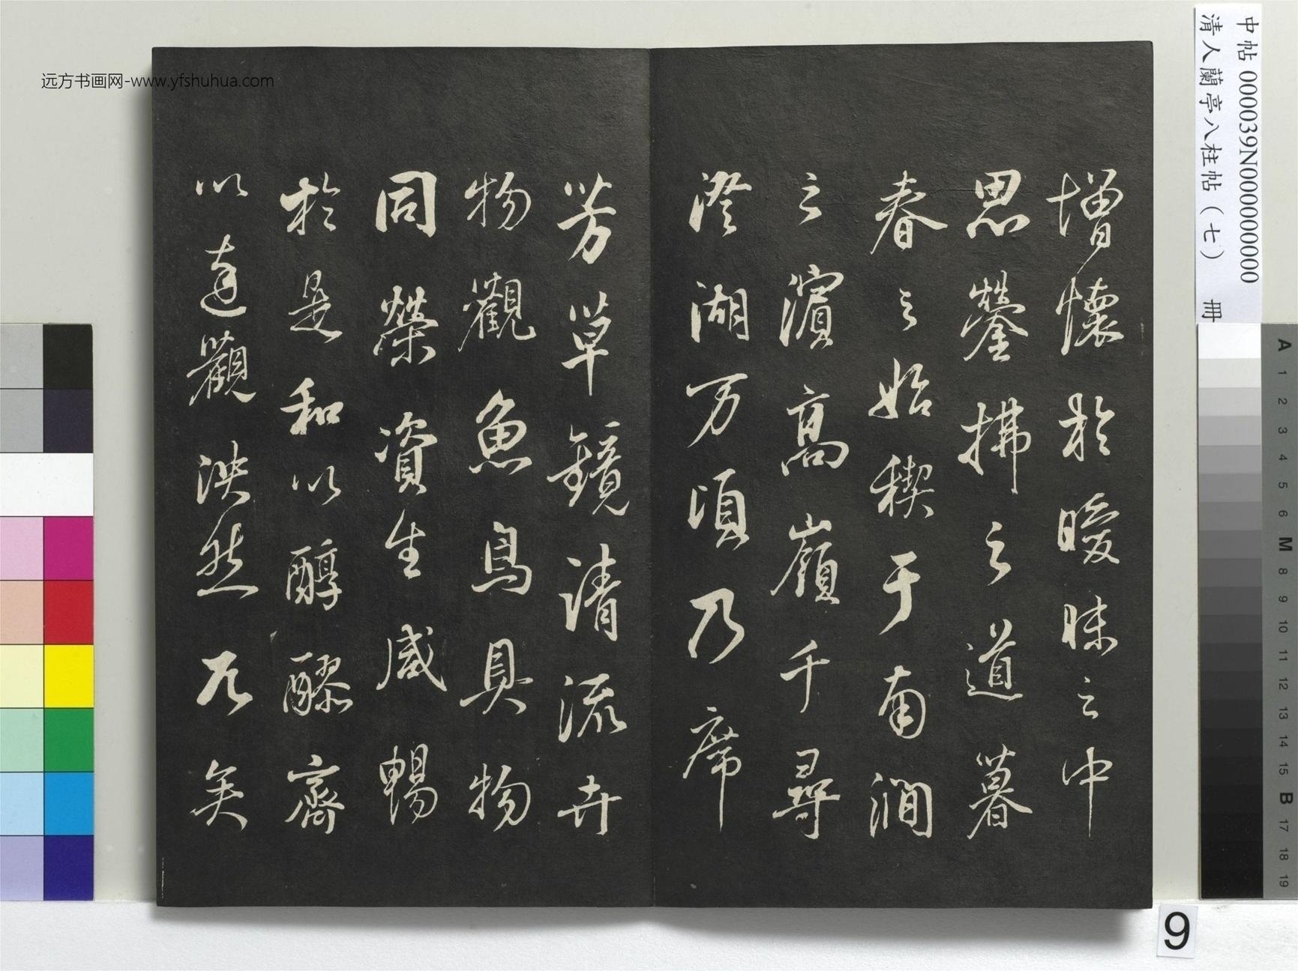 增懷於曖昧之中
思縈拂之道暮
春之始禊于南澗
之濱高嶺千尋
澄湖万頃乃席
芳草鏡清流卉
物觀魚鳥具物
同榮資生咸暢
於是和以醇醪齊
以達觀泱然兀矣
远方书画网-www.yfshuhua.com
中帖 000039N000000000
清人蘭亭八柱帖（七） 冊
A
1
2
3
4
5
6
M
8
9
10
11
12
13
14
15
B
17
18
19
9